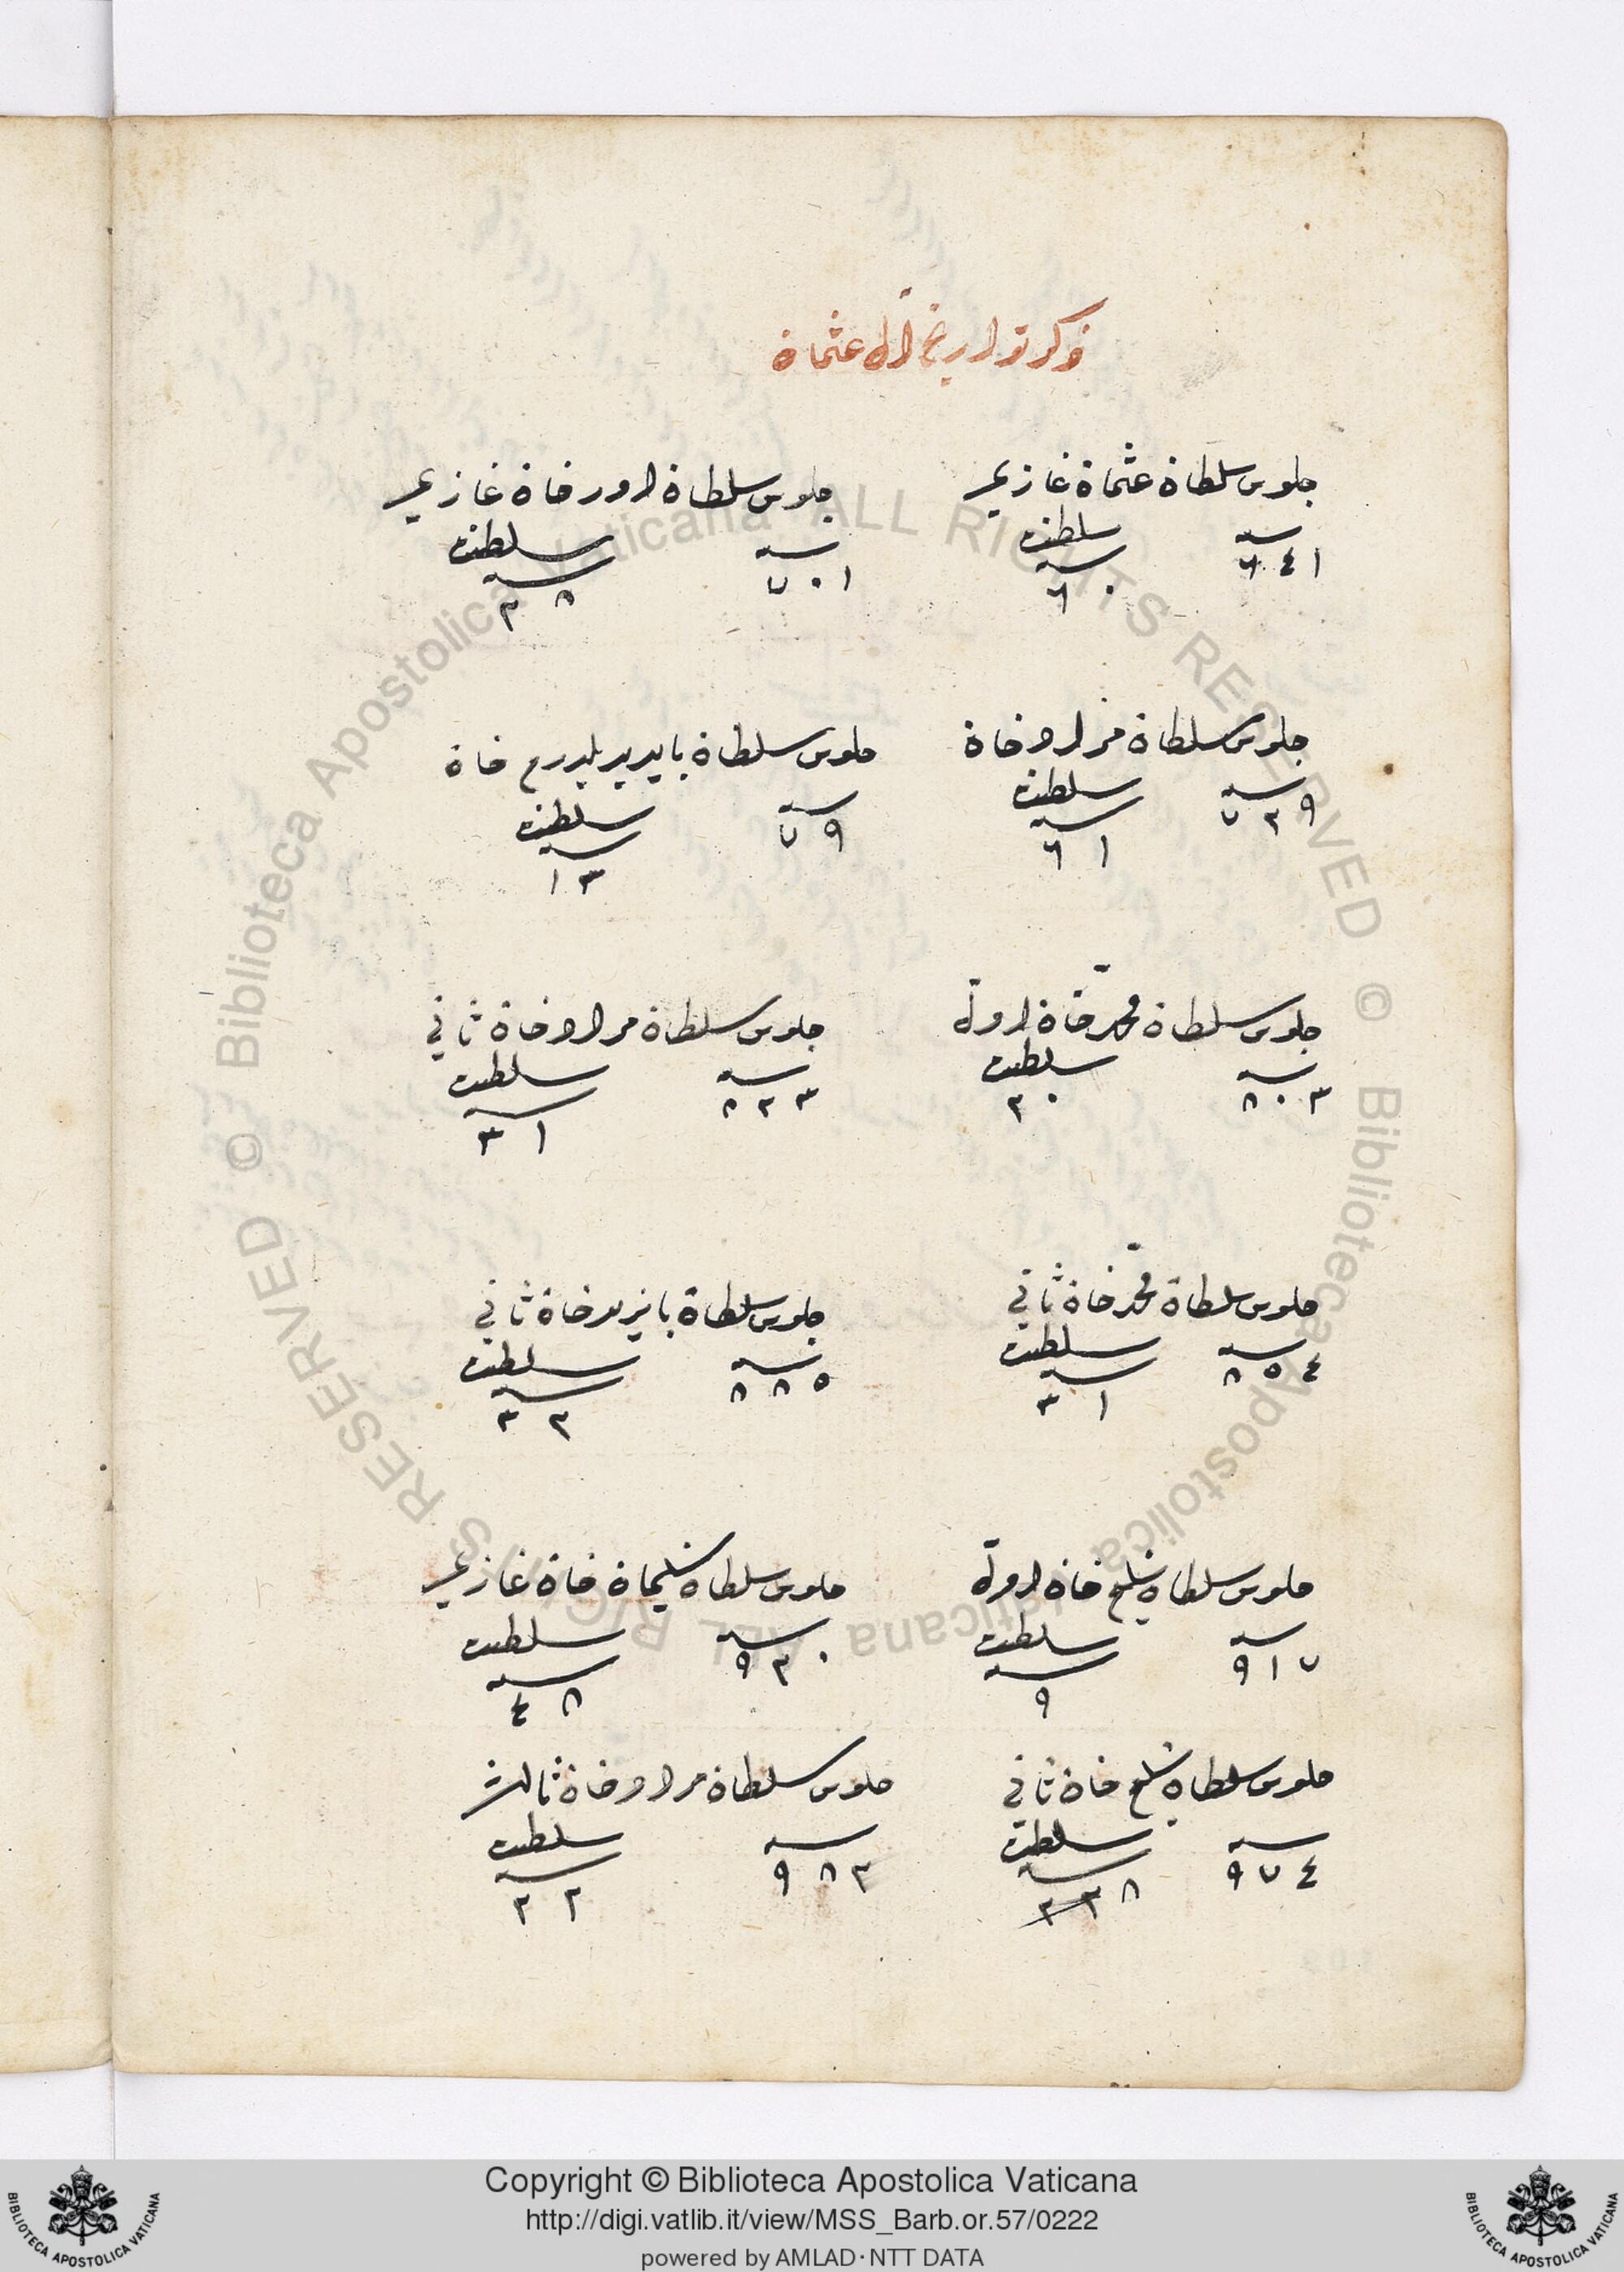 ذكر تواريخ آل عثمان
جلوس سلطان عثمان غازي
سنه ٦٤١
سلطنت سنه ٦٠
جلوس سلطان اورخان غازي
سنه ٧٠١
سلطنت سنه ٣٨
جلوس سلطان مراد خان
سنه ٧٣٩
سلطنت سنه ٦١
جلوس سلطان بايزيد يلدرم خان
سنه ٧٩
سلطنت سنه ١٣
جلوس سلطان محمد خان اول
سنه ٨٠٣
سلطنت ٢٠
جلوس سلطان مراد خان ثاني
سنه ٨٢٣
سلطنت سنه ٣١
جلوس سلطان محمد خان ثاني
سنه ٨٥٤
سلطنت سنه ٣١
جلوس سلطان بايزيد خان ثاني
سنه ٨٨٥
سلطنت سنه ٣٢
جلوس سلطان سليم خان اول
سنه ٩١٧
سلطنت سنه ٩
جلوس سلطان سليمان خان غازي
سنه ٩٣٠
سلطنت سنه ٤٨
جلوس سلطان سليم خان ثاني
سنه ٩٧٤
سلطنت سنه ٨
جلوس سلطان مراد خان ثالث
سنه ٩٨٢
سلطنت سنه ٢٢
© Biblioteca Apostolica Vaticana ALL RIGHTS RESERVED © Biblioteca Apostolica Vaticana ALL RIGHTS RESERVED
Copyright © Biblioteca Apostolica Vaticana
http://digi.vatlib.it/view/MSS_Barb.or.57/0222
powered by AMLAD · NTT DATA
BIBLIOTECA APOSTOLICA VATICANA
BIBLIOTECA APOSTOLICA VATICANA